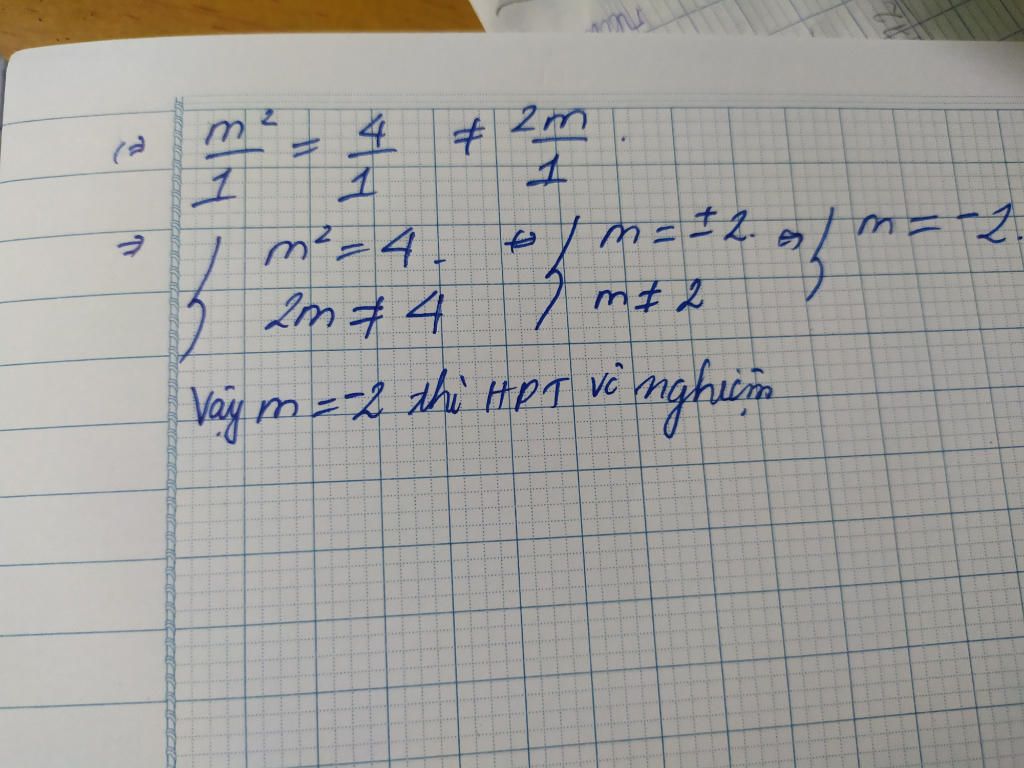 (=> m²/1 = 4/1 ≠ 2m/1.
=> { m² = 4. <=> { m = ±2. <=> { m = -2.
2m ≠ 4 m ≠ 2
Vậy m = -2 thì HPT vô nghiệm